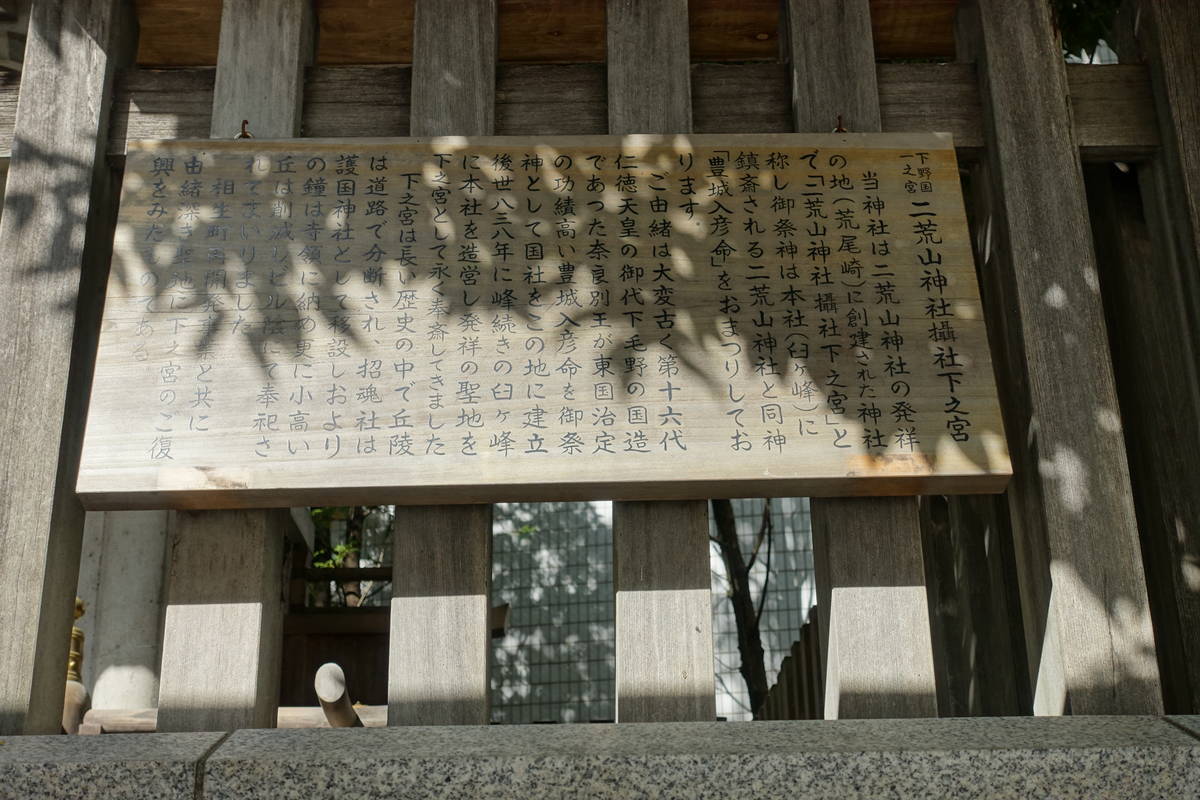 下野国
一之宮 二荒山神社攝社下之宮
当神社は二荒山神社の発祥
の地(荒尾崎)に創建された神社
で「二荒山神社 攝社下之宮」と
称し御祭神は本社(臼ヶ峰)に
鎮斎される二荒山神社と同神
「豊城入彦命」をおまつりしてお
ります。
ご由緒は大変古く第十六代
仁徳天皇の御代下毛野の国造
であった奈良別王が東国治定
の功績高い豊城入彦命を御祭
神として国社をこの地に建立
後世八三八年に峰続きの臼ヶ峰
に本社を造営し発祥の聖地を
下之宮として永く奉斎してきました
下之宮は長い歴史の中で丘陵
は道路で分断され、招魂社は
護国神社として移設しおより
の鐘は寺領に納め更に小高い
丘は削減しビル陰にて奉祀さ
れてまいりました
相生町再開発事業と共に
由緒深き聖地に下之宮のご復
興をみたものである